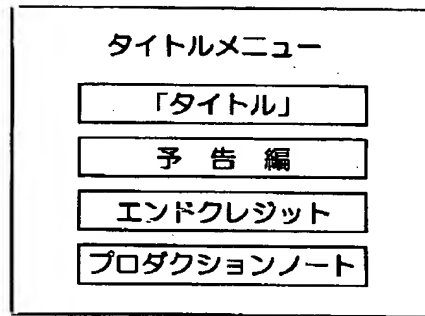 タイトルメニュー
「タイトル」
予告編
エンドクレジット
プロダクションノート